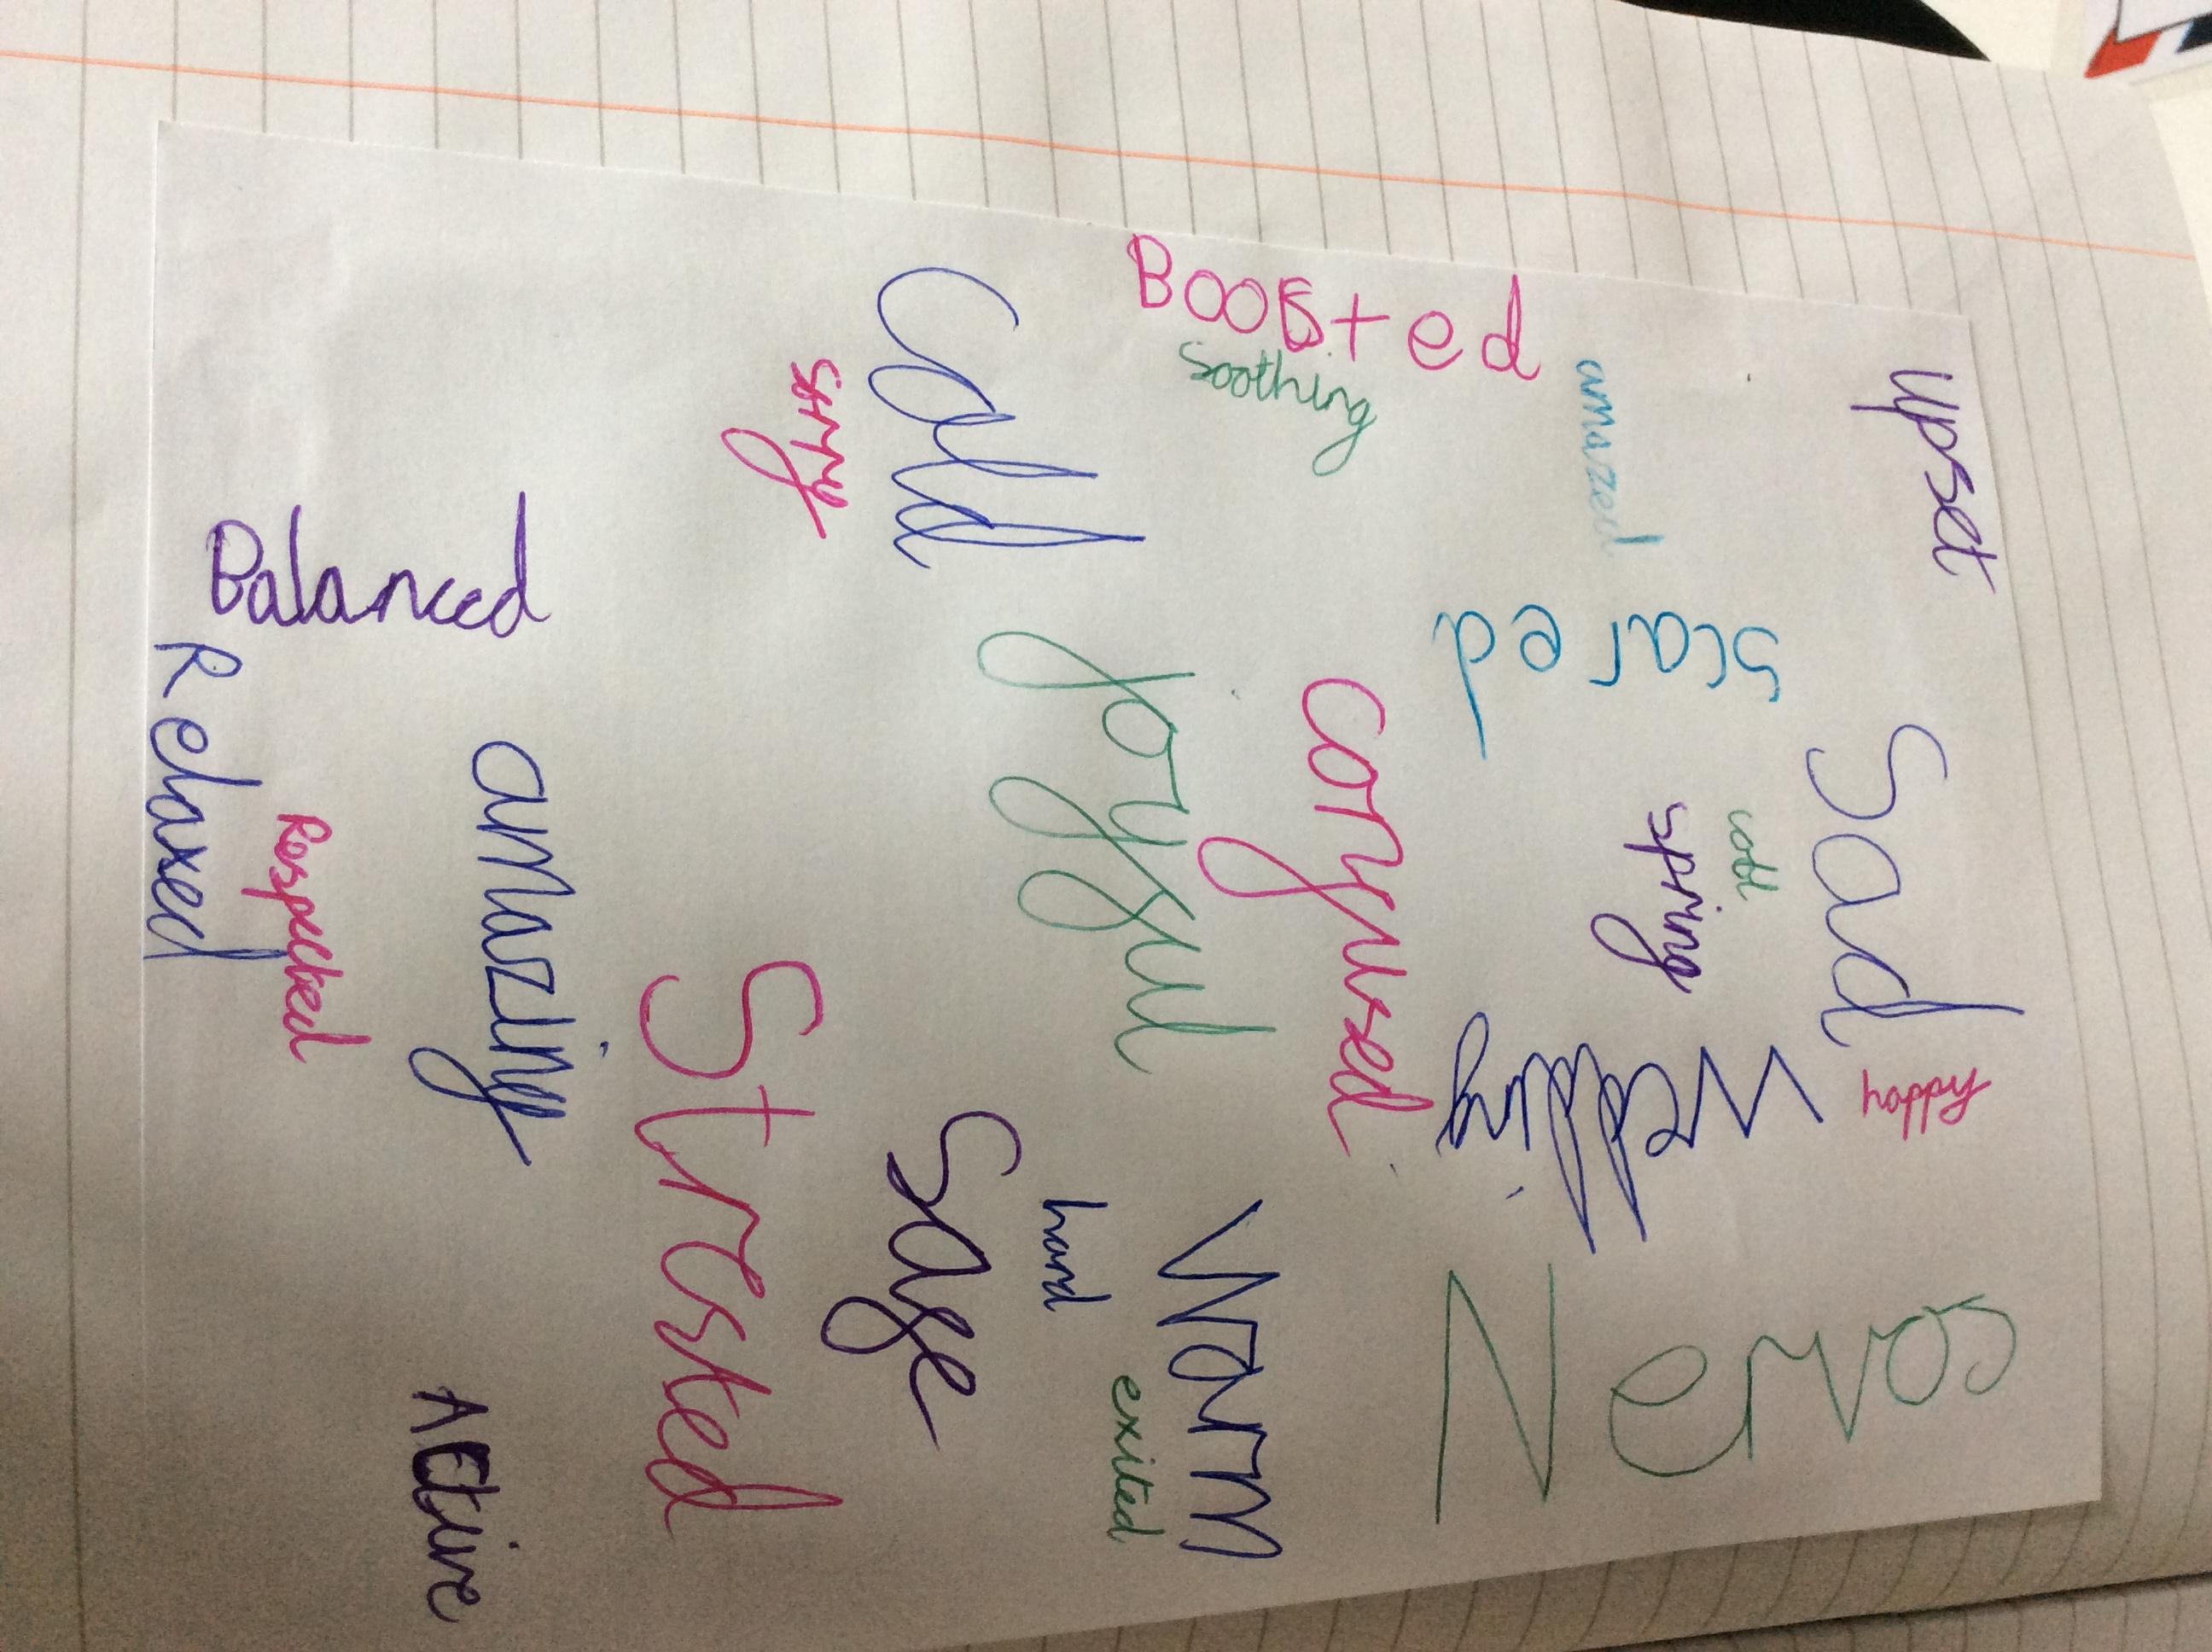 upset
Sad
happy
Nervos
amazed
scared
cool
spring
Wedding
Boosted
soothing
confused
Warm
exited
Cold
joyful
hard
Safe
Stressed
amazing
Active
Balanced
Respected
Relaxed